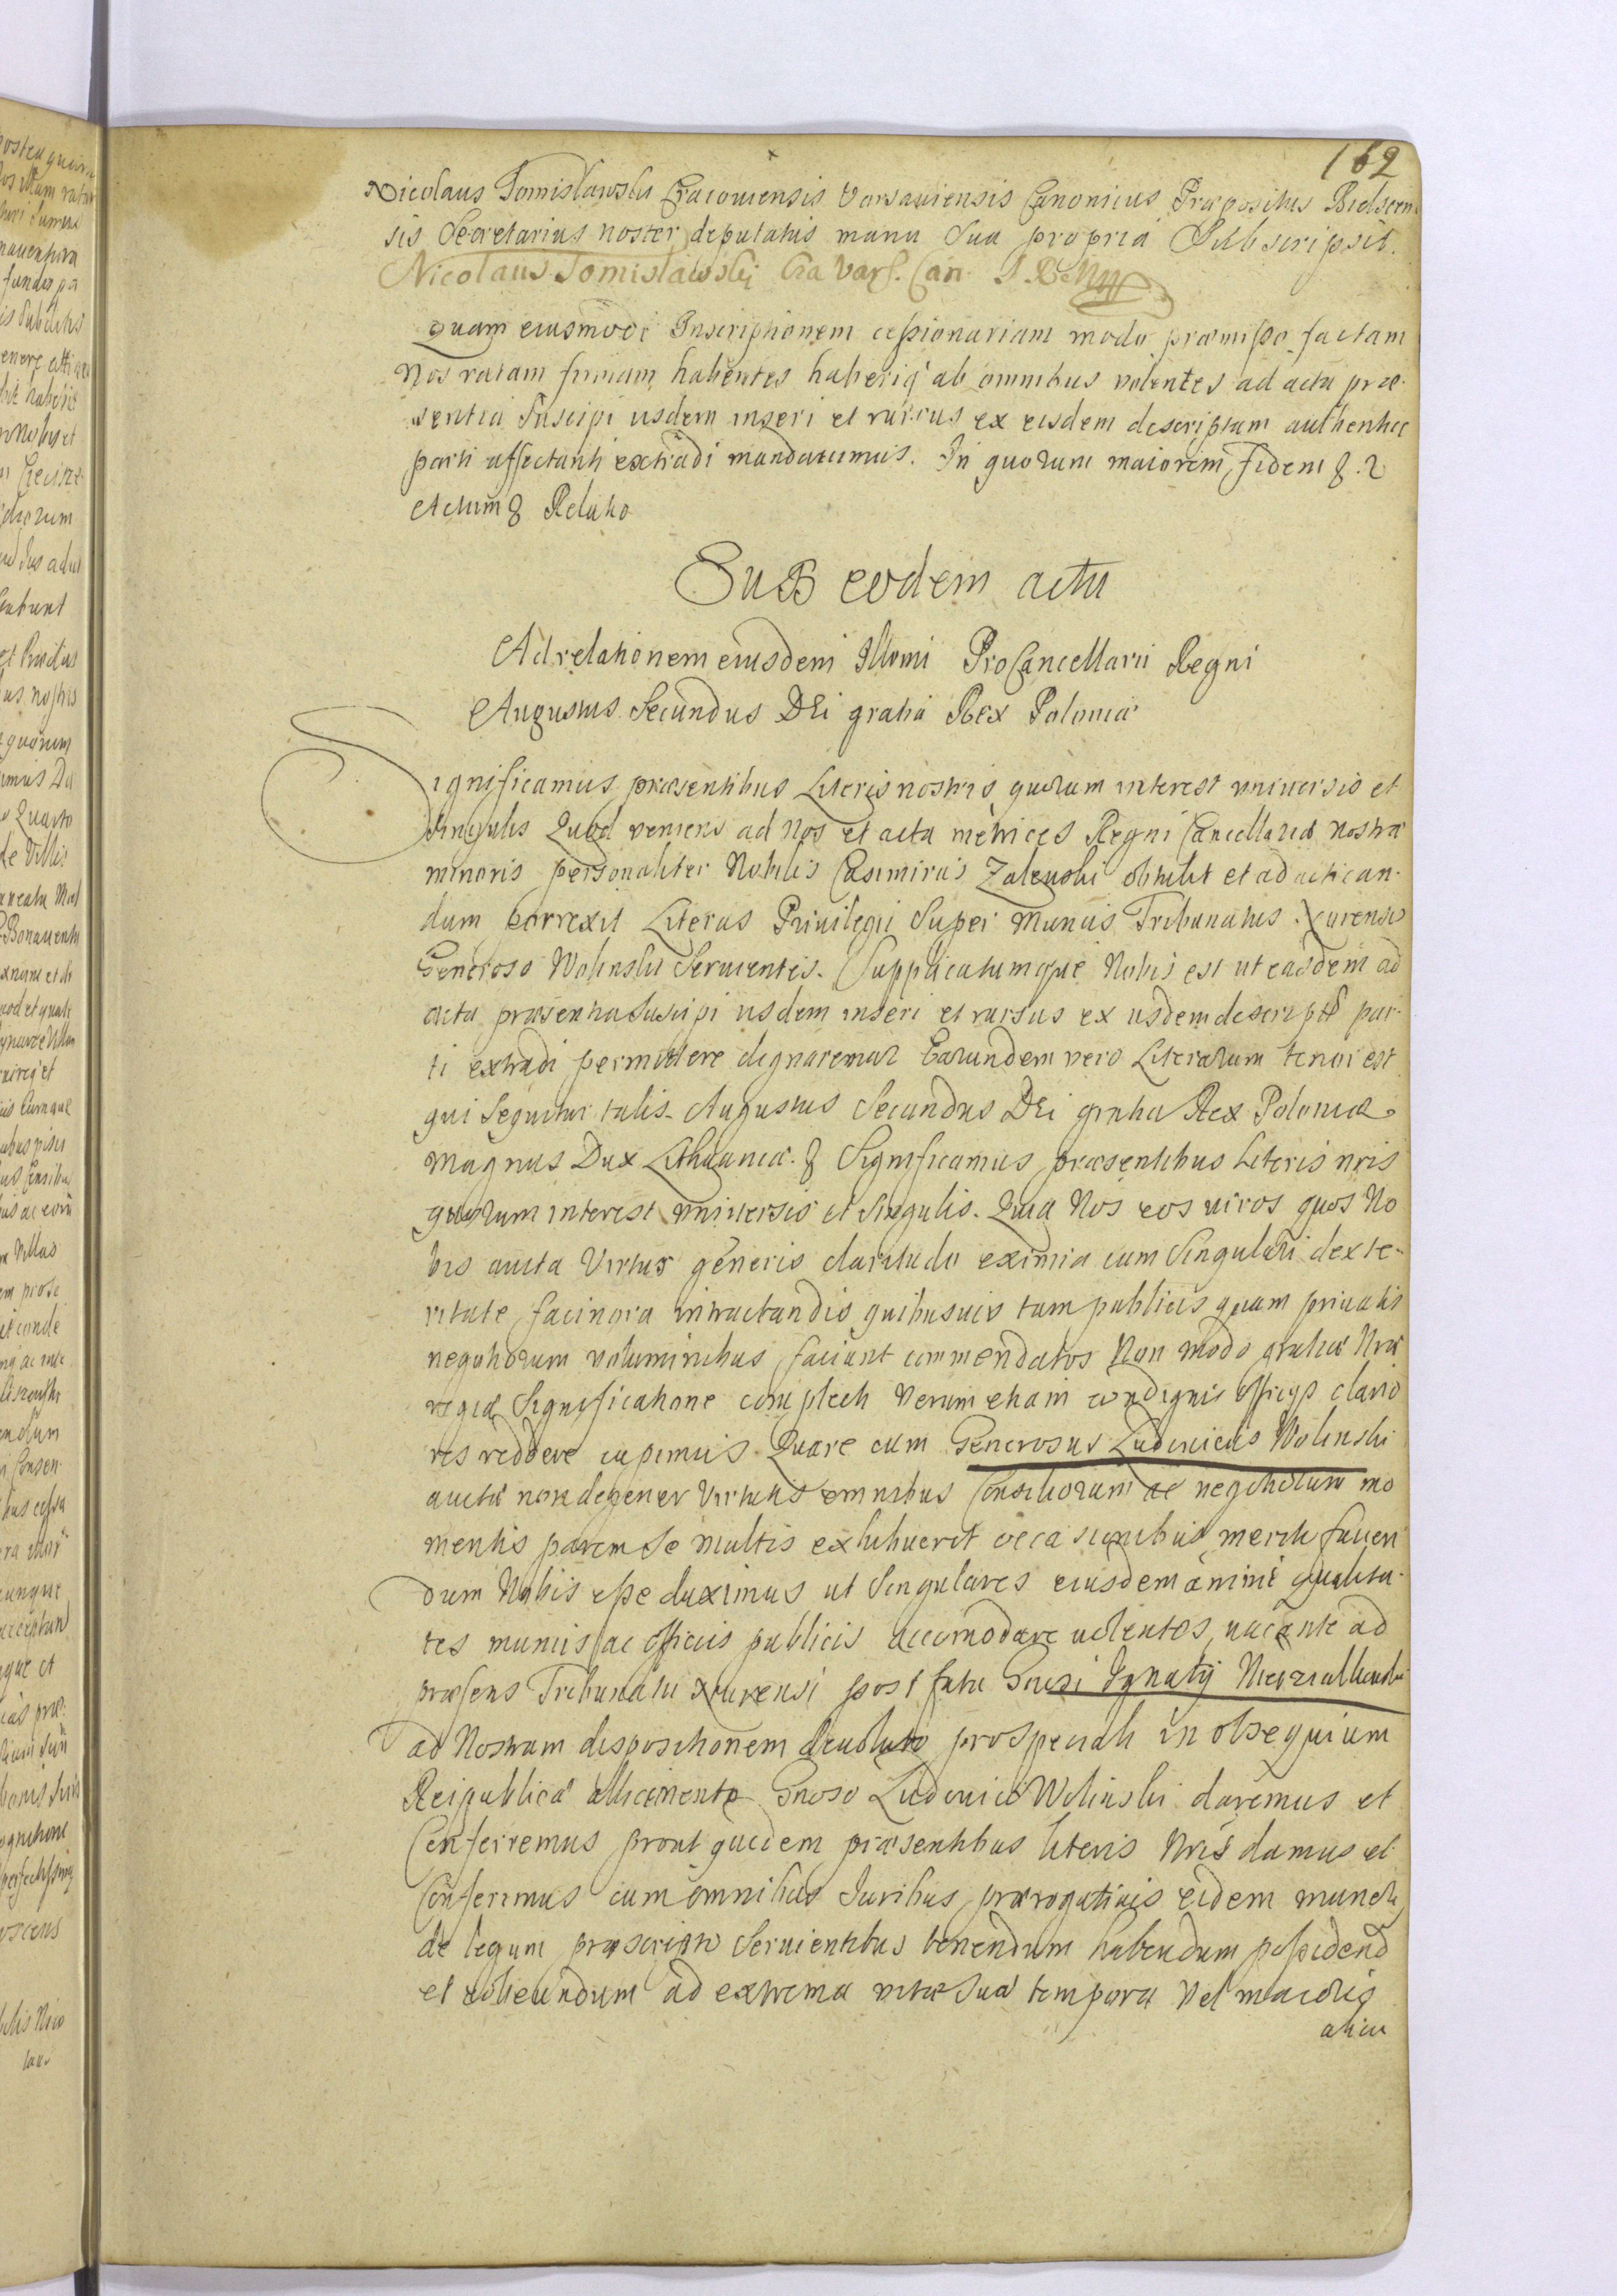 162
Nicolaus Tomisławski Cracouiensis Varsauiensis Canonicus Præpositus Bielscen
sis Secretarius noster deputatus manu Sua propria Subscripsit.
Nicolaus Tomisławski Cra Vars. Can.
quam eiusmodi Inscriptionem cessionariam modo præmisso factam
Nos ratam firmam habentes haberiq ab omnibus volentes ad acta præ-
sentia Suscipi iisdem inseri et rursus ex eisdem descriptam authentice
parti affectanti extradi mandauimus. In quorum maiorem fidem &.
Actum & Relatio
SuB eodem actu
Ad relationem eiusdem Illmi ProCancellarii Regni
Augustus Secundus DEi gratia Rex Poloniæ
Significamus præsentibus Literis nostris quorum interest vniuersis et
Singulis Quod veniens ad Nos et acta metrices Regni Cancellariæ nostræ
minoris personaliter Nobilis Casimirus Zaleuski obtulit et ad actican-
dum porrexit Literas Priuilegii Super munus Tribunatus Xurensis
Generoso Wolinski Seruientes. Supplicatumque Nobis est ut easdem ad
acta præsentia Suscipi iisdem inseri et rursus ex iisdem descriptas par-
ti extradi permittere dignaremur Earundem vero Literarum tenor est
qui Sequitur talis. Augustus Secundus DEi gratia Rex Poloniæ
Magnus Dux Lithuaniæ. & Significamus præsentibus Literis nris
quorum interest vniuersis et Singulis. Quia Nos eos viros quos No
bis auita Virtus generis claritudo eximia cum Singulari dexte-
ritate facinora in tractandis quibusuis tam publicis quam priuatis
negotiorum voluminibus faciunt commendatos Non modo gratiæ Nræ
regiæ Significatione complecti Verum etiam condignis officijs clario
res reddere cupimus. Quare cum Generosus Ludouicus Wolinski
auitæ non degener Virtutis omnibus Consiliorum ac negotiorum mo
mentis parem Se multis exhibuerit occasionibus merito fauen
dum Nobis esse duximus ut Singulares eiusdem animi qualita-
tes muniis ac officiis publicis accomodare volentes, vacante ad
præsens Tribunatu Xurensi post fata Gnosi Ignatij
ad Nostram dispositionem deuoluto pro speciali in obsequium
Reipublicæ allicimento Gnoso Ludouico Wolinski daremus et
Conferremus prout quidem præsentibus literis Nris damus et
Conferimus cum omnibus Iuribus prærogatiuis eidem muneri
de legum præscripto Seruientibus tenendum habendum possidend
et obeundum ad extrema vitæ Suæ tempora Vel maioris
alicu